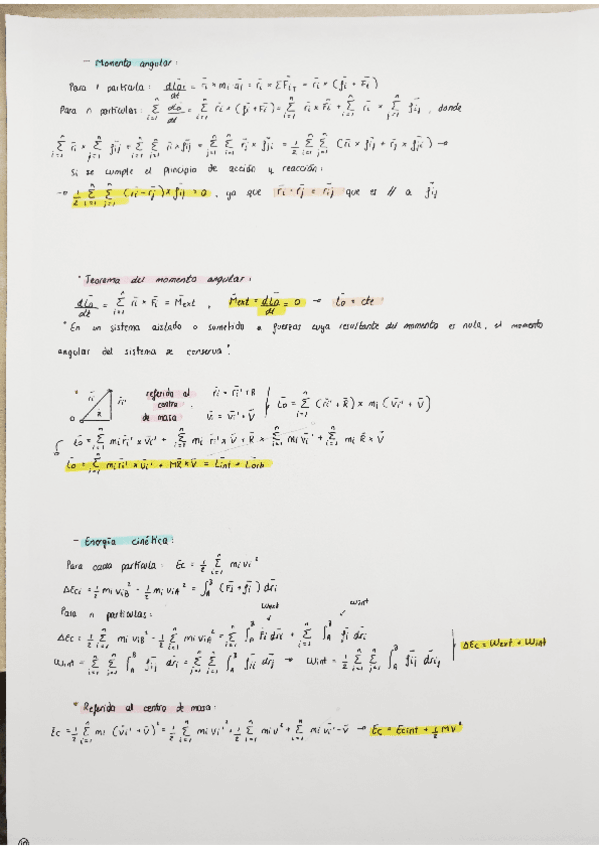 - Momento angular:
Para 1 partícula: dL̄oi/dt = r̄i × mi āi = r̄i × ΣF̄iT = r̄i × (f̄i + F̄i)
Para n partículas: Σ(i=1→n) dL̄o/dt = Σ(i=1→n) r̄i × (f̄i + F̄i) = Σ(i=1→n) r̄i × F̄i + Σ(i=1→n) r̄i × Σ(j=1→n) f̄ij, donde
Σ(i=1→n) r̄i × Σ(j=1→n) f̄ij = Σ(i=1→n) Σ(j=1→n) r̄i × f̄ij = Σ(j=1→n) Σ(i=1→n) r̄j × f̄ji = 1/2 Σ(i=1→n) Σ(j=1→n) (r̄i × f̄ij + r̄j × f̄ji) →
Si se cumple el principio de acción y reacción:
→ 1/2 Σ(i=1→n) Σ(j=1→n) (r̄i - r̄j) × f̄ij = 0, ya que r̄i - r̄j = r̄ij que es // a f̄ij
* Teorema del momento angular:
dL̄o/dt = Σ(i=1→n) r̄i × F̄i = M̄ext, M̄ext = dL̄o/dt = 0 → L̄o = cte
"En un sistema aislado o sometido a fuerzas cuya resultante del momento es nula, el momento
angular del sistema se conserva".
* referida al centro de masa
O r̄i r̄i' R̄
r̄i = r̄i' + R̄
v̄i = v̄i' + V̄
L̄o = Σ(i=1→n) (r̄i' + R̄) × mi (v̄i' + V̄)
L̄o = Σ(i=1→n) mi r̄i' × v̄i' + Σ(i=1→n) mi r̄i' × V̄ + R̄ × Σ(i=1→n) mi v̄i' + Σ(i=1→n) mi R̄ × V̄
L̄o = Σ(i=1→n) mi r̄i' × v̄i' + MR̄ × V̄ = L̄int + L̄orb
- Energía cinética:
Para cada partícula: Ec = 1/2 Σ(i=1→n) mi vi²
ΔEci = 1/2 mi viB² - 1/2 mi viA² = ∫(A→B) (F̄i + f̄i) dr̄i
Para n partículas:
Wext Wint
ΔEc = 1/2 Σ(i=1→n) mi viB² - 1/2 Σ(i=1→n) mi viA² = Σ(i=1→n) ∫(A→B) F̄i dr̄i + Σ(i=1→n) ∫(A→B) f̄i dr̄i
ΔEc = Wext + Wint
Wint = Σ(i=1→n) Σ(j=1→n) ∫(A→B) f̄ij dr̄i = Σ(j=1→n) Σ(i=1→n) ∫(A→B) f̄ji dr̄j → Wint = 1/2 Σ(i=1→n) Σ(j=1→n) ∫(A→B) f̄ij dr̄ij
* Referida al centro de masa:
Ec = 1/2 Σ(i=1→n) mi (v̄i' + V̄)² = 1/2 Σ(i=1→n) mi vi'² + 1/2 Σ(i=1→n) mi V² + Σ(i=1→n) mi v̄i' · V̄ → Ec = Ecint + 1/2 MV²